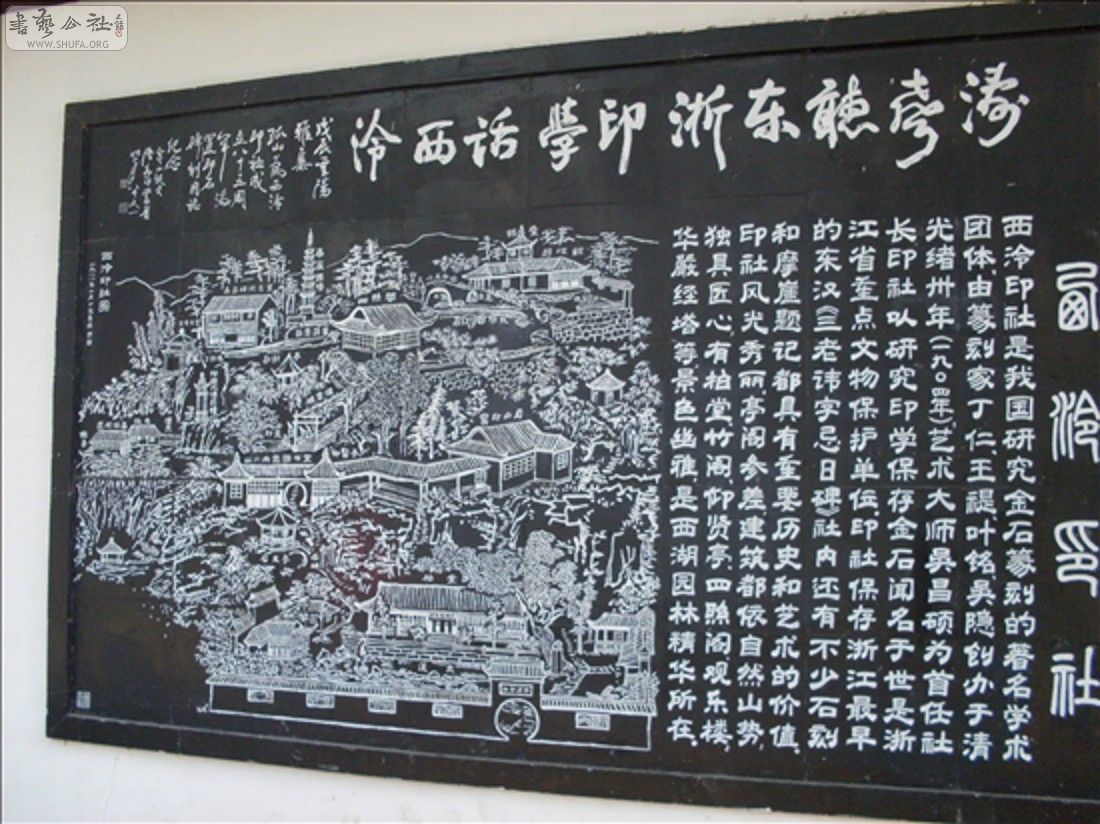 書藝公社
WWW.SHUFA.ORG
西泠印社
涛声听东浙印学话西泠
西泠印社是我国研究金石篆刻的著名学术
团体.由篆刻家丁仁.王禔.叶铭.吴隐创办于清
光绪卅年(一九〇四年)艺术大师吴昌硕为首任社
长.印社以研究印学保存金石闻名于世.是浙
江省重点文物保护单位.印社保存浙江最早
的东汉《三老讳字忌日碑》.社内还有不少石刻
和摩崖题记都具有重要历史和艺术的价值.
印社风光秀丽.亭阁参差.建筑都依自然山势,
独具匠心.有柏堂.竹阁.仰贤亭.四照阁.观乐楼.
华严经塔等景色幽雅.是西湖园林精华所在.
戊戌重阳
雅集
孤山为西泠
印社成
立八十三周
碑刻
纪念
西泠印社图